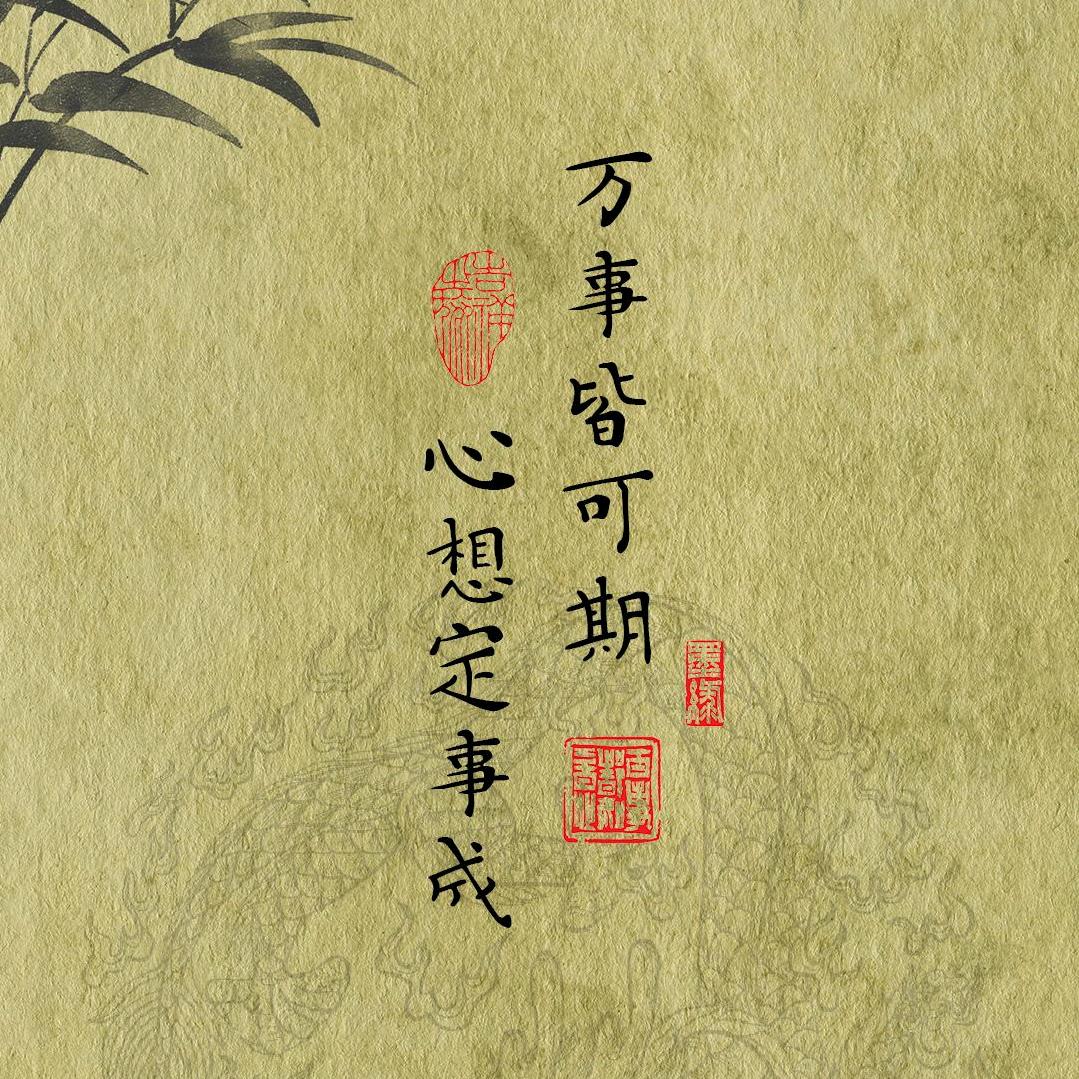 万事皆可期
心想定事成
墨缘